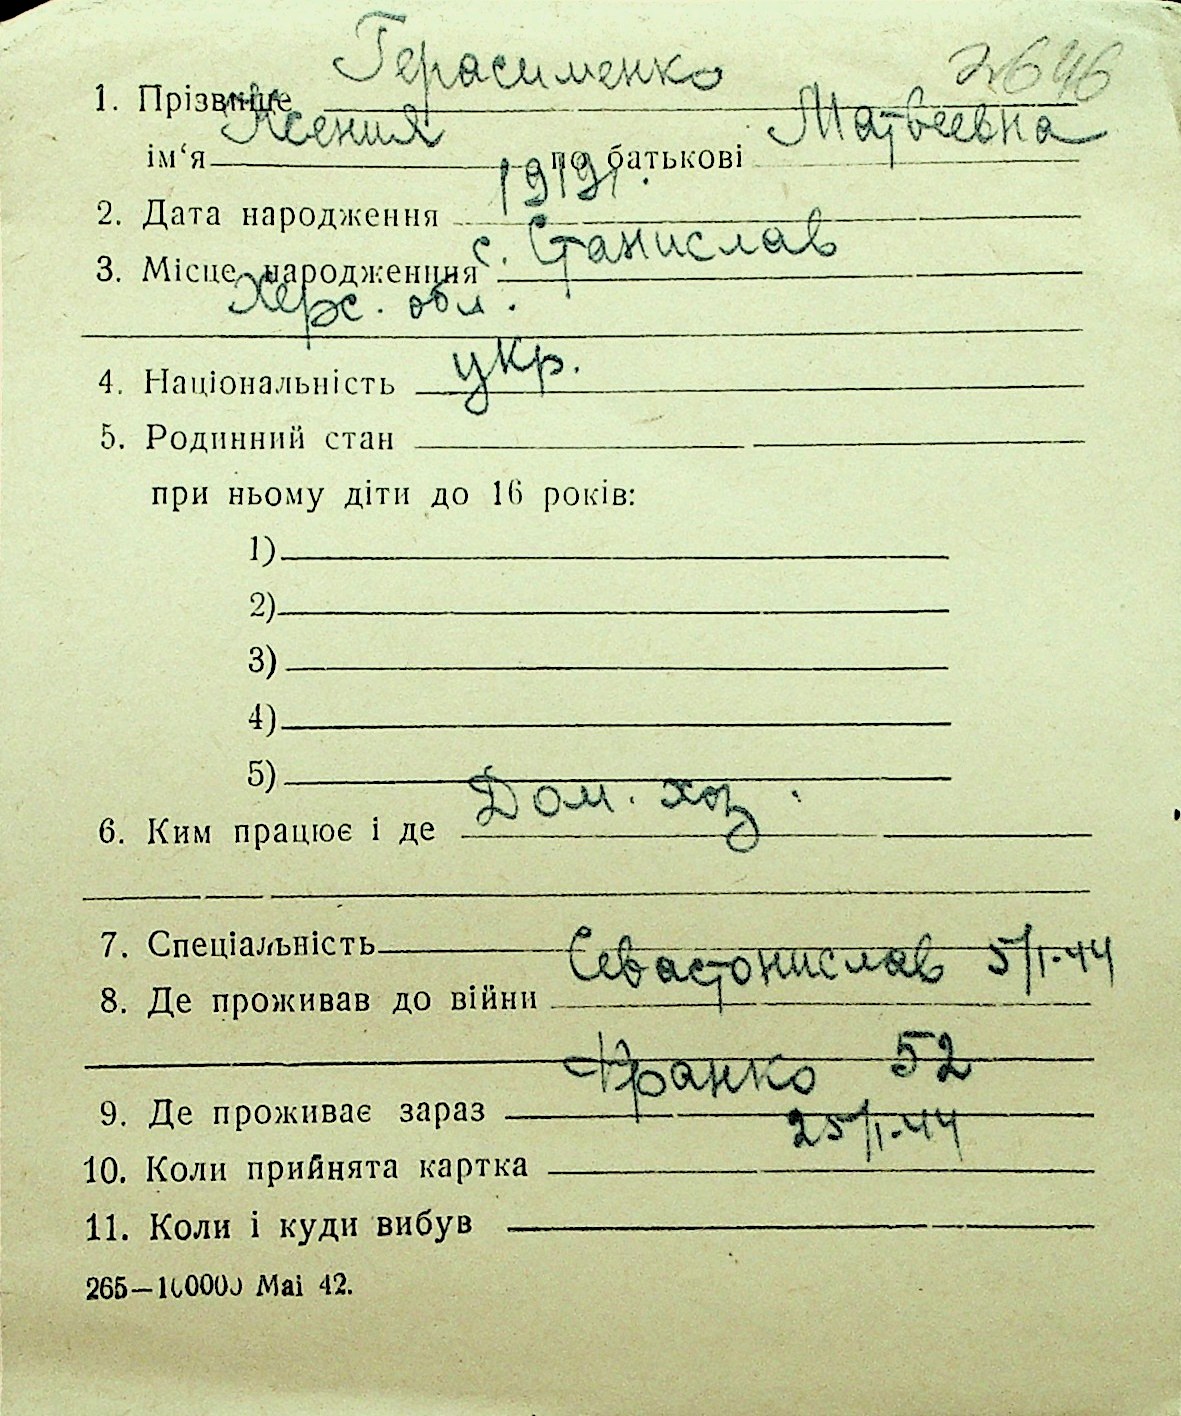 Герасименко 2646
1. Прізвище
Ксения Матвеевна
ім‘я по батькові
1919 г.
2. Дата народження
с. Станислав
3. Місце народженння
Херс. обл.
укр.
4. Національність
5. Родинний стан
при ньому діти до 16 років:
1)
2)
3)
4)
5)
Дом. хоз.
6. Ким працює і де
7. Спеціальність
Севастонислав 5/I-44
8. Де проживав до війни
Франко 52
9. Де проживає зараз
25/I-44
10. Коли прийнята картка
11. Коли і куди вибув
265—100000 Mai 42.